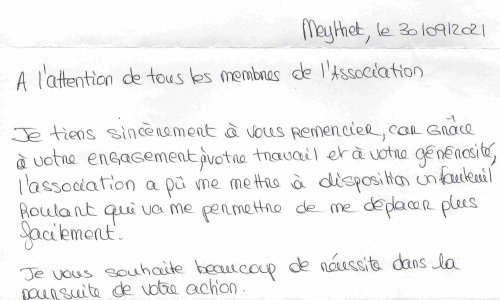 Meythet, le 30/09/2021
A l'attention de tous les membres de l'Association
Je tiens sincèrement à vous remercier, car grâce
à votre engagement, à votre travail et à votre générosité,
l'association a pû me mettre à disposition un fauteuil
Roulant qui va me permettre de me déplacer plus
facilement.
Je vous souhaite beaucoup de réussite dans la
poursuite de votre action.